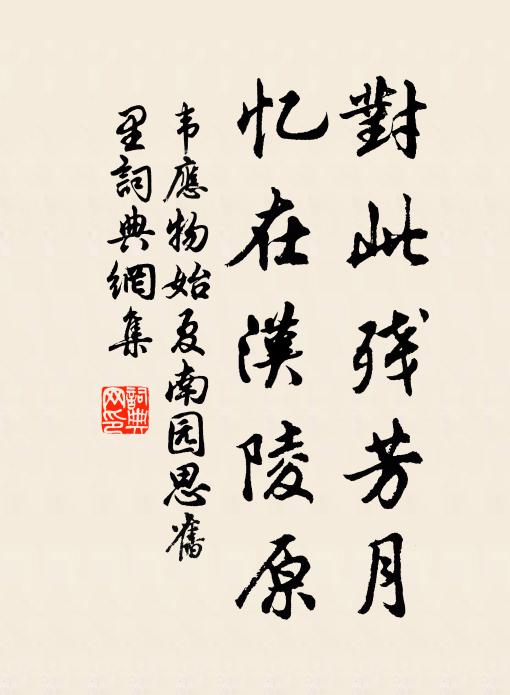 對此残芳月
忆在漢陵原
韦應物始夏南园思舊
里詞典網集
詞典网印